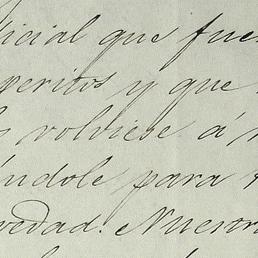 icial que fue
peritos y que
volviese á
ándole para
vedad. Nuestr